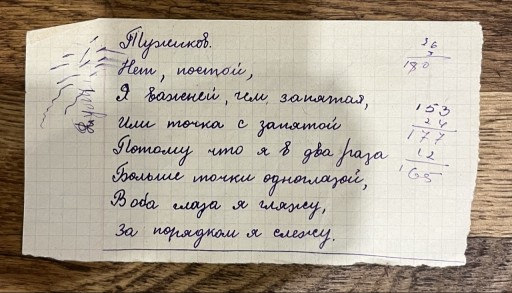 Тужиков.
Нет, постой,
Я важней, чем запятая,
Или точка с запятой
Потому что я в два раза
Больше точки одноглазой,
В оба глаза я гляжу,
За порядком я слежу.
153
24
177
12